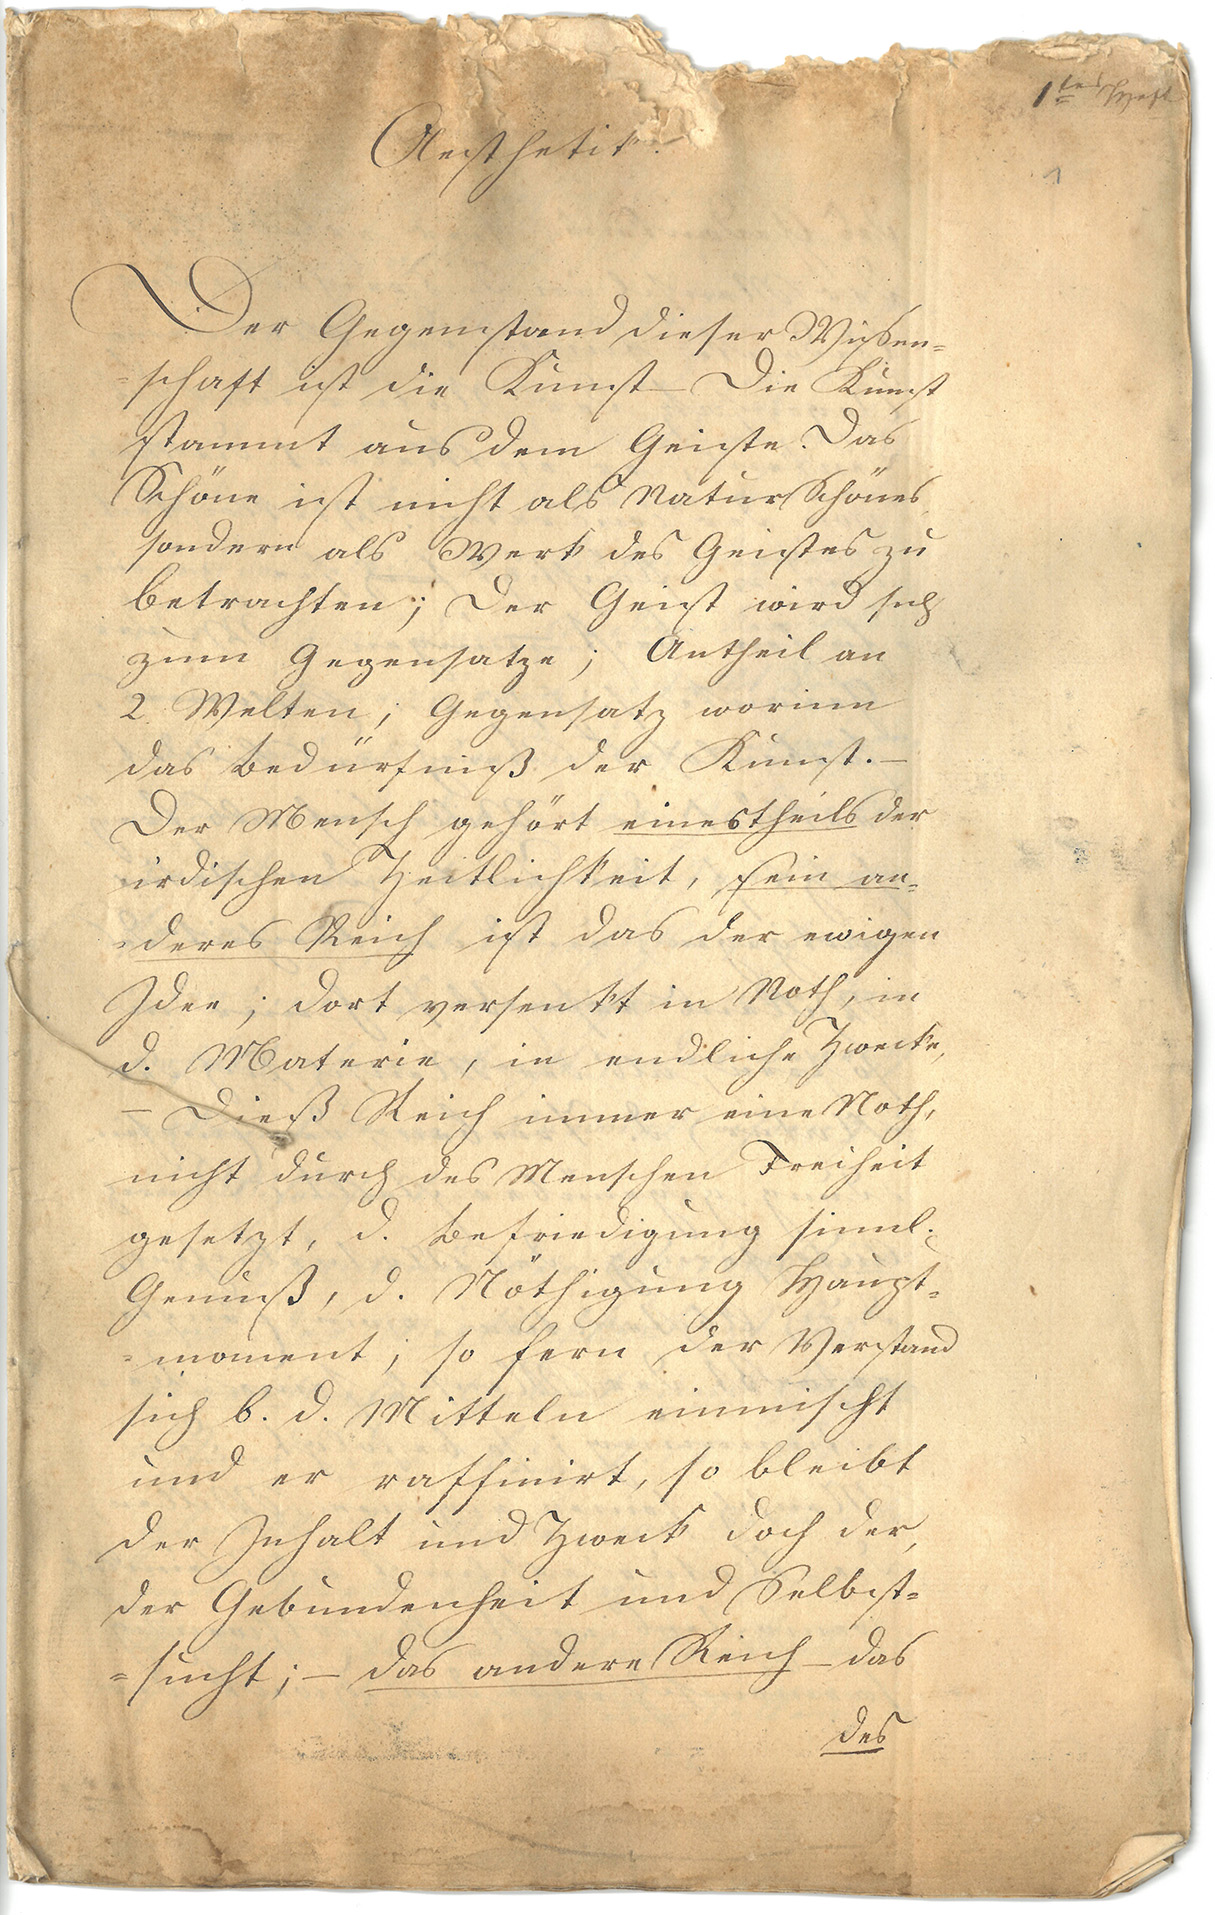 1tes Heft
1
Aesthetik.
Der Gegenstand dieser Wissen=
=schaft ist die Kunst – Die Kunst
stammt aus dem Geiste. Das
Schöne ist nicht als NaturSchönes,
sondern als Werk des Geistes zu
betrachten; Der Geist wird sich
zum Gegensatze; Antheil an
2. Welten; Gegensatz worinn
das Bedürfniß der Kunst. –
Der Mensch gehört einestheils der
irdischen Zeitlichkeit, sein an=
=deres Reich ist das der ewigen
Idee; dort versenkt in Noth, in
d. Materie, in endliche Zwecke,
– Dieß Reich immer eine Noth,
nicht durch des Menschen Freiheit
gesetzt, d. Befriedigung sinnl.
Genuß, d. Nöthigung Haupt=
=moment; so fern der Verstand
sich b. d. Mitteln einmischt
und er raffinirt, so bleibt
der Inhalt und Zweck doch der,
der Gebundenheit und Selbst=
=sucht; – das andere Reich – das
des